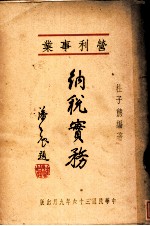 業事利營
杜子熊編著
納稅實務
潘序倫題
中華民國三十六年九月出版